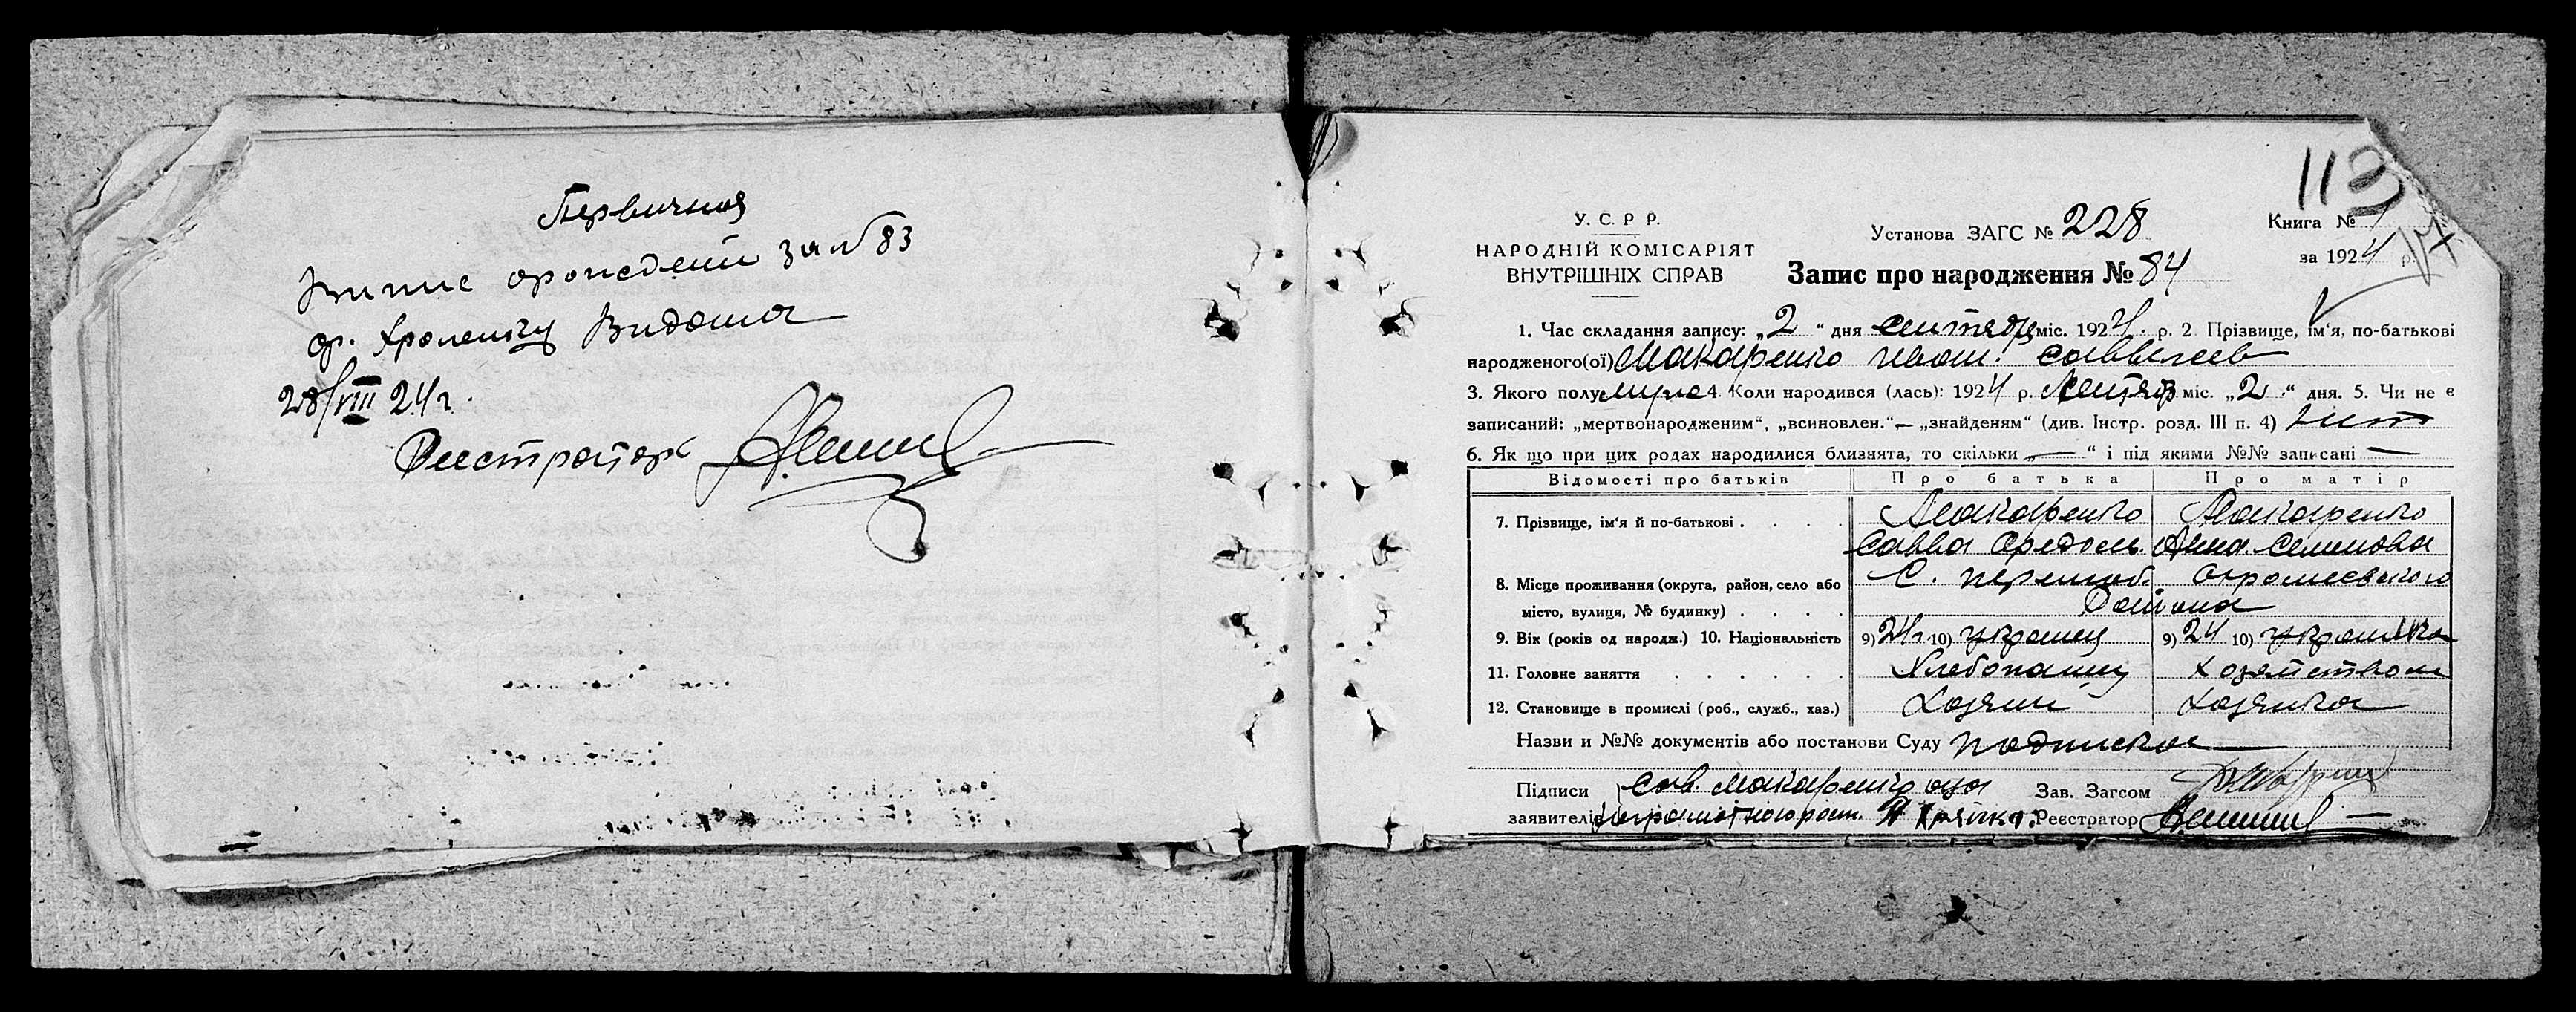 Первичная
за №83
гр. Видана
28/VIII 24 г.
Реестратор
113
У. С. Р. Р.
НАРОДНІЙ КОМІСАРІЯТ
ВНУТРІШНІХ СПРАВ
Установа ЗАГС № 228
Книга № 1
за 1924 р.
17
Запис про народження № 84
1. Час складання запису: „2“ дня сентября міс. 1924 р. 2 Прізвище, ім'я, по-батькові
народженого(ої) Макаренко Иван. Саввелеев
3. Якого полу муже 4. Коли народився (лась): 1924 р. Сентяр міс. „2“ дня. 5. Чи не є
записаний: „мертвонародженим“, „всиновлен.“— „знайденям“ (див. Інстр. розд. III п. 4) нет
6. Як що при цих родах народилися близнята, то скільки „—“ і під якими №№ записані —
Відомості про батьків Про батька Про матір
7. Прізвище, ім'я й по-батькові . . . . Макаренко Макаренко
Савва Анна Семенова
8. Місце проживання (округа, район, село або С.
місто, вулиця, № будинку) . . . . Района
9. Вік (років од народж.) 10. Національність 9) 24 г. 10) украинец 9) 24 10) украинка
11. Головне заняття . . . . . . Хлебопашец хозяйством
12. Становище в промислі (роб., служб., хаз.) Хозяин Хозяйка
Назви и №№ документів або постанови Суду подписка
Підписи Сав. Макаренко Зав. Загсом
заявителів Реєстратор